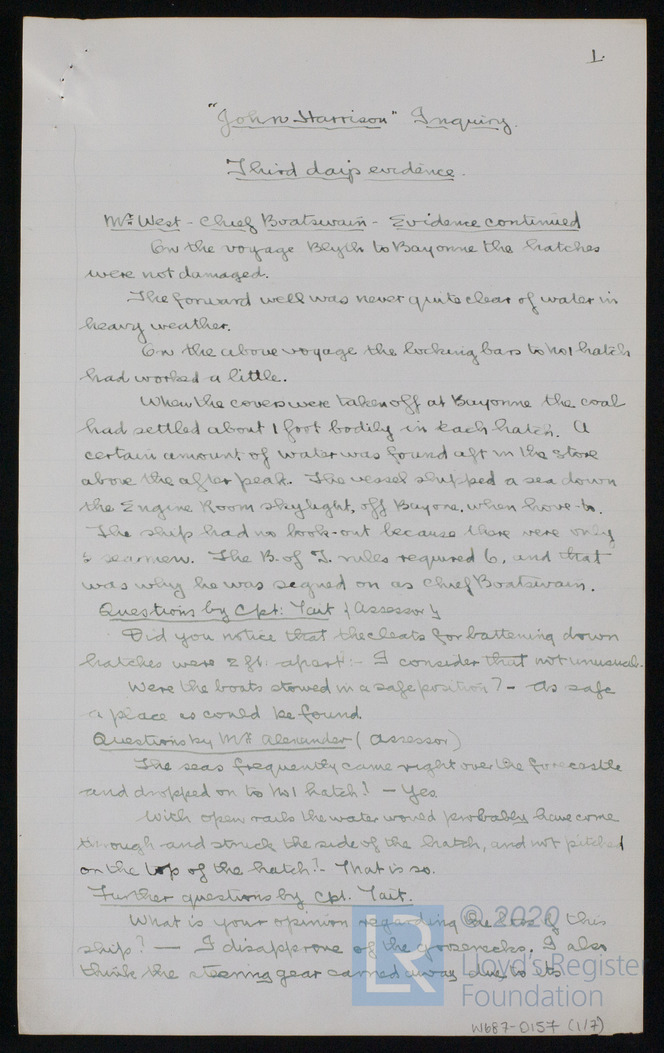 1.
"John Harrison" Inquiry.
Third day's evidence.
Mr. West - Chief Boatswain - Evidence continued
On the voyage Blyth to Bayonne the hatches
were not damaged.
The forward well was never quite clear of water in
heavy weather.
On the above voyage the locking bars to No 1 hatch
had worked a little.
When the covers were taken off at Bayonne the coal
had settled about 1 foot bodily in each hatch. A
certain amount of water was found aft in the store
above the after peak. The vessel shipped a sea down
the Engine Room skylight, off Bayone, when hove-to.
The ship had no look-out because there were only
5 seamen. The B. of T. rules required 6, and that
was why he was signed on as Chief Boatswain.
Questions by Cpt. Tait (Assessor)
Did you notice that the cleats for battening down
hatches were 2 ft. apart:- I consider that not unusual.
Were the boats stowed in a safe position? - As safe
a place as could be found.
Questions by Mr. Alexander (Assessor)
The seas frequently came right over the forecastle
and dropped on to No 1 hatch? - Yes.
With open rails the water would probably have come
through and struck the side of the hatch, and not pitched
on the top of the hatch? - That is so.
Further questions by Cpt. Tait.
What is your opinion regarding the loss of this
ship? - I disapprove of the goosenecks. I also
think the steering gear carried away due to its
LR
© 2020
Lloyd's Register
Foundation
W687-0157 (1/7)